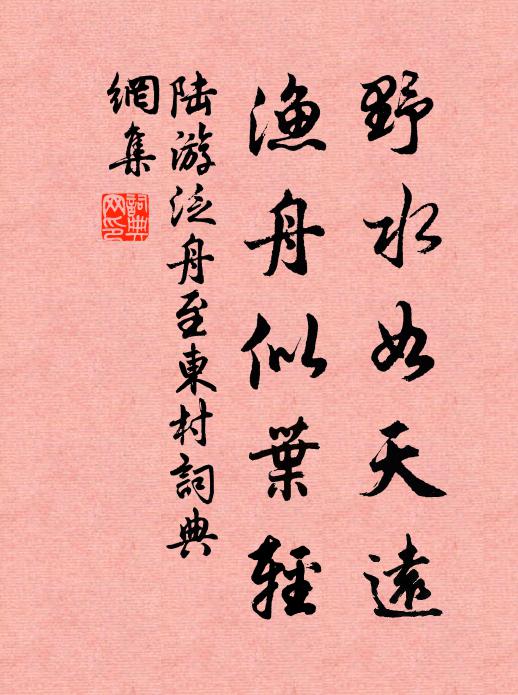 野水如天遠
漁舟似葉輕
陸游泛舟至東村詞典
網集
詞典網印